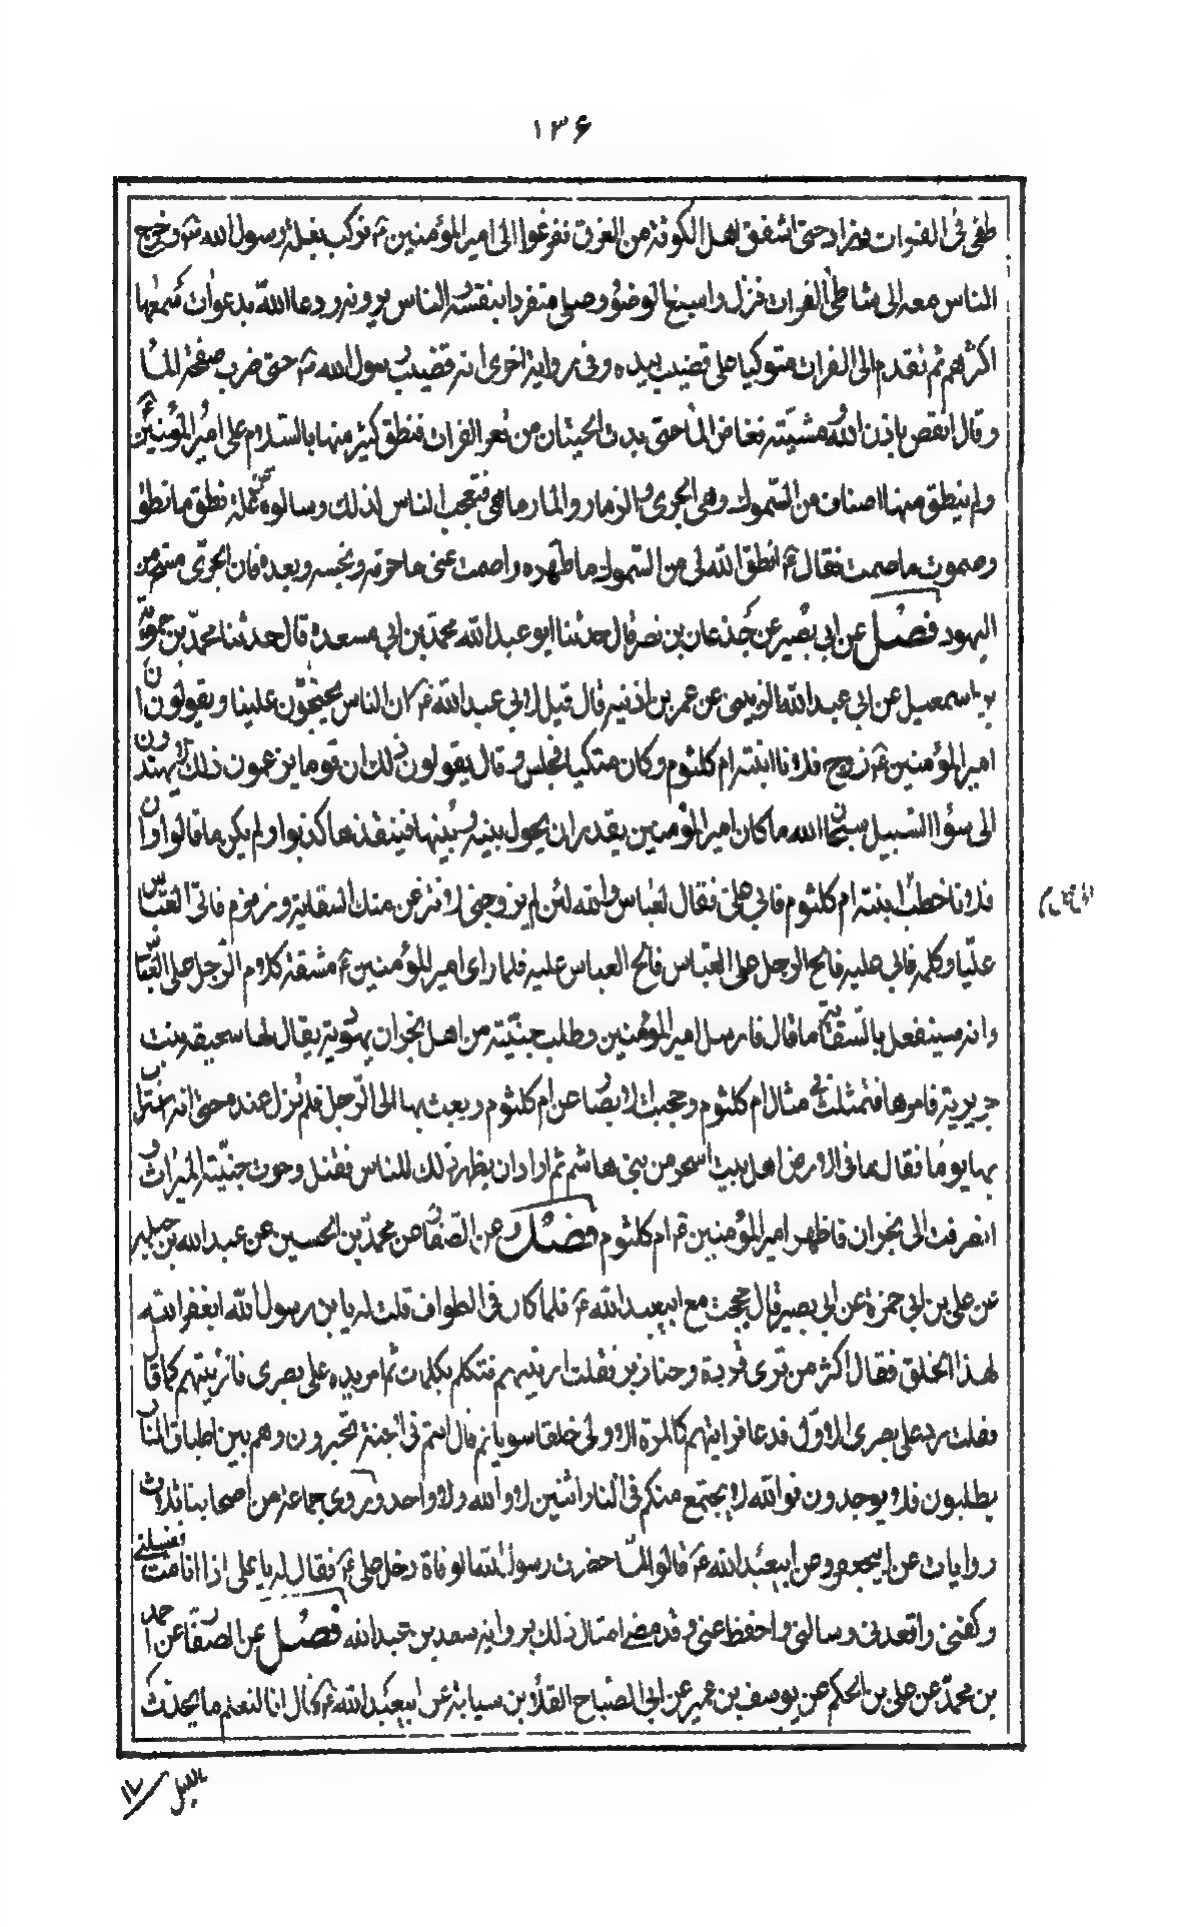 ١٣۶
طغى في الفرات فزاد حتى اشفق اهل الكوفة من الغرق ففزعوا الى امير المؤمنين ع فركب بغلة رسول الله ص وخرج
الناس معه الى شاطئ الفرات فنزل واسبغ الوضوء وصلى منفردا بنفسه الناس يرونه ودعا الله بدعوات سمعها
اكثرهم ثم تقدم الى الفرات متوكيا على قضيب بيده وفي رواية اخرى انه قضيب رسول الله ص حتى ضرب صفحة الما
وقال انقص باذن الله ومشيته فغاض الماء حتى بدت الحيتان من قعر الفرات فنطق كثير منها بالسلام على امير المؤمنين ع
ولم ينطق منها اصناف من السموك وهي الجري والزمار والمارماهي فتعجب الناس لذلك وسالوه عن علة نطق ما نطق
وصموت ما صمت فقال ع انطق الله لى من السموك ما طهره واصمت عني ما حرمه ونجسه وبعده فان الجري مسخ من
اليهود فصل عن ابي بصير عن جذعان بن نصر قال حدثنا ابو عبد الله محمد بن ابي مسعدة قال حدثنا محمد بن حمويه
بن اسمعيل عن ابي عبد الله الزبيبى عن عمر بن اذنيه قال قيل لابي عبد الله ع ان الناس يحتجون علينا ويقولون ان
امير المؤمنين ع زوج فلانا ابنته ام كلثوم وكان متكيا فجلس وقال يقولون ذلك ان قوما يزعمون ذلك لا يهتدون
الى سواء السبيل سبحان الله ما كان امير المؤمنين يقدر ان يحول بينه وبينها فينقذها كذبوا ولم يكن ما قالوا وان
فلانا خطب ابنته ام كلثوم فابى على فقال لعباس والله لئن لم يزوجني لانزعن منك السقاية وزمزم فاتى العباس
عليا وكلمه فابى عليه فالح الرجل على العباس فالح العباس عليه فلما راى امير المؤمنين ع مشقة كلام الرجل على العباس
وانه سيفعل بالسقاية ما قال فارسل امير المؤمنين وطلب جنيّة من اهل نجران يهودية يقال لها سحيقة بنت
جريرية فامرها فتمثلت في مثال ام كلثوم وحجبت الابصار عن ام كلثوم وبعث بها الى الرجل فلم تزل عنده حتى انه استراب
بها يوما فقال ما في الارض اهل بيت اسحر من بني هاشم ثم اراد ان يظهر ذلك للناس فقتل وحوت جنيّة الميراث و
انصرفت الى نجران فاظهر امير المؤمنين ع ام كلثوم فصل وعن الصفار عن محمد بن الحسين عن عبد الله بن جبله
عن على بن ابي حمزة عن ابي بصير قال حججت مع ابيعبد الله ع فلما كان في الطواف قلت له يا بن رسول الله ايغفر الله
لهذا الخلق فقال اكثر من ترى قردة وخنازير فقلت ارنيهم فتكلم بكلمات ثم امر يده على بصرى فاريتهم كما قال
فقلت رد على بصرى الاول فدعا فرايتهم كالمرة الاولى خلقا سويا ثم قال انتم في الجنة تحبرون وهم بين اطباق النار
يطلبون فلا يوجدون فوالله لا يجتمع منكم في النار اثنين لا والله ولا واحد وروى جماعة من اصحابنا ثلاث
روايات عن ابيجعفر وعن ابيعبد الله ع قالوا لما حضرت رسول الله الوفاة دخل على ع فقال له يا على اذا انا مت فغسلني
وكفني واقعدني وسالني واحفظ عني وقد مضى امثال ذلك برواية سعد بن عبد الله فصل عن الصفار عن احمد
بن محمد عن على بن الحكم عن يوسف بن عمير عن ابي الصباح القلا بن سيابة عن ابيعبد الله ع قال انا لنعلم ما يحدث
بالليل
١٧